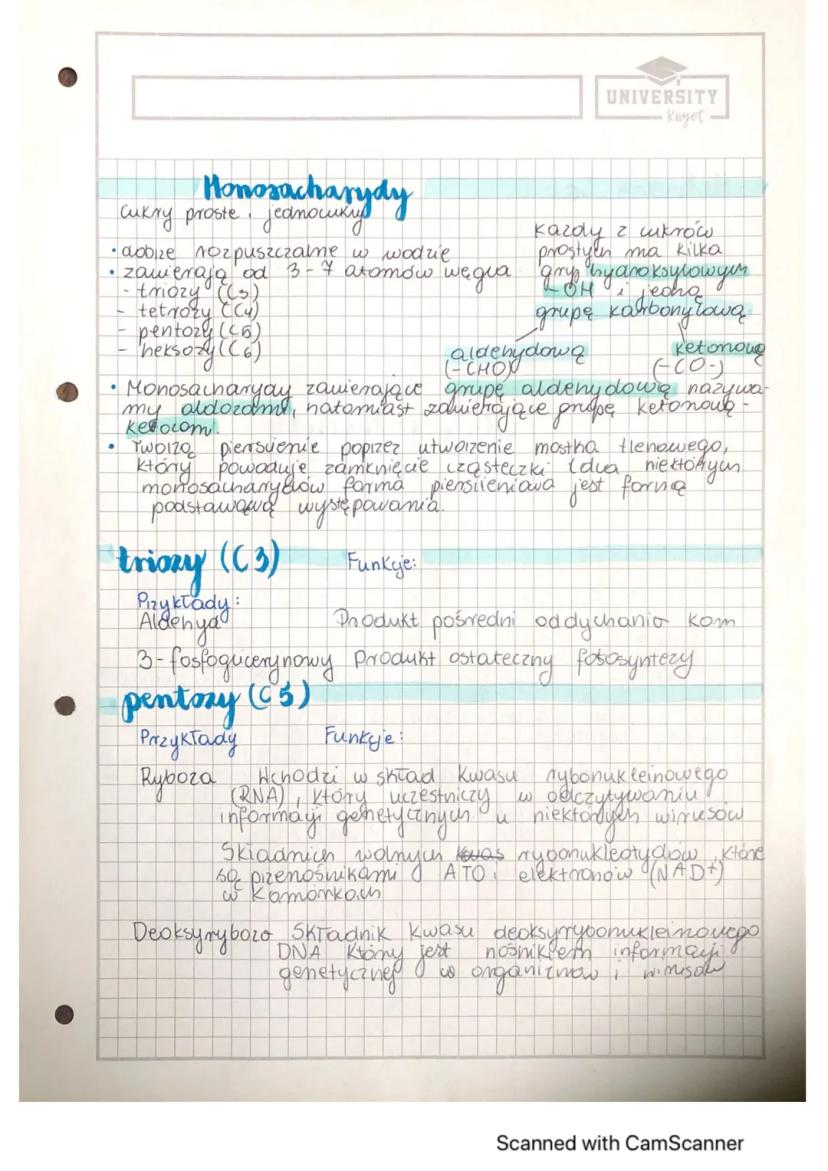 UNIVERSITY
Keyet
Monosacharydy
cukry proste, jednocukry
• dobrze rozpuszczalne w wodzie
• zawierają od 3-7 atomów węgla
- triozy (C3)
- tetrozy (C4)
- pentozy (C5)
- heksozy (C6)
każdy z cukrów
prostych ma kilka
grup hydroksylowym
-OH i jedną
grupę karbonylową
aldehydową
(-CHO)
ketonową
(-CO-)
• Monosacharydy zawierające grupę aldehydową nazywa-
my aldozami, natomiast zawierające grupę ketonową -
ketozami.
• Tworzą piersienie poprzez utworzenie mostka tlenowego,
który powoduje zamknięcie cząsteczki (dla niektórych
monosacharydów forma pierścieniowa jest formą
podstawową występowania.
triozy (C3)
Funkcje:
Przykłady:
Aldehyd Produkt pośredni oddychania kom
3-fosfoglicerynowy Produkt ostateczny fotosyntezy
pentozy (C5)
Przykłady Funkcje:
Ryboza Wchodzi w skład kwasu rybonukleinowego
(RNA), który uczestniczy w odczytywaniu
informacji genetycznych u niektórych wirusów
Składnich wolnych rybonukleotydów, które
są przenośnikami ATO i elektronów (NAD+)
w komórkach
Deoksyryboza Składnik kwasu deoksyrybonukleinowego
DNA który jest nośnikiem informacji
genetycznej w organizmów i wirusów
Scanned with CamScanner